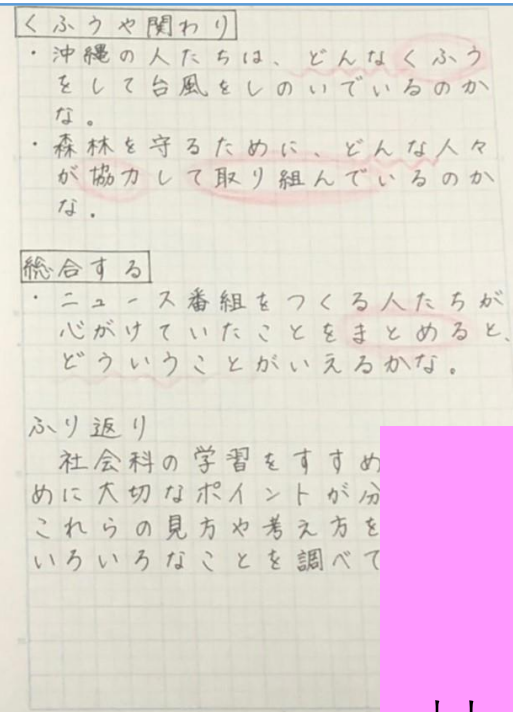 くふうや関わり
・沖縄の人たちは、どんなくふう
をして台風をしのいでいるのか
な。
・森林を守るために、どんな人々
が協力して取り組んでいるのか
な。
総合する
・ニュース番組をつくる人たちが
心がけていたことをまとめると、
どういうことがいえるかな。
ふり返り
社会科の学習をすすめ
めに大切なポイントが分
これらの見方や考え方を
いろいろなことを調べて